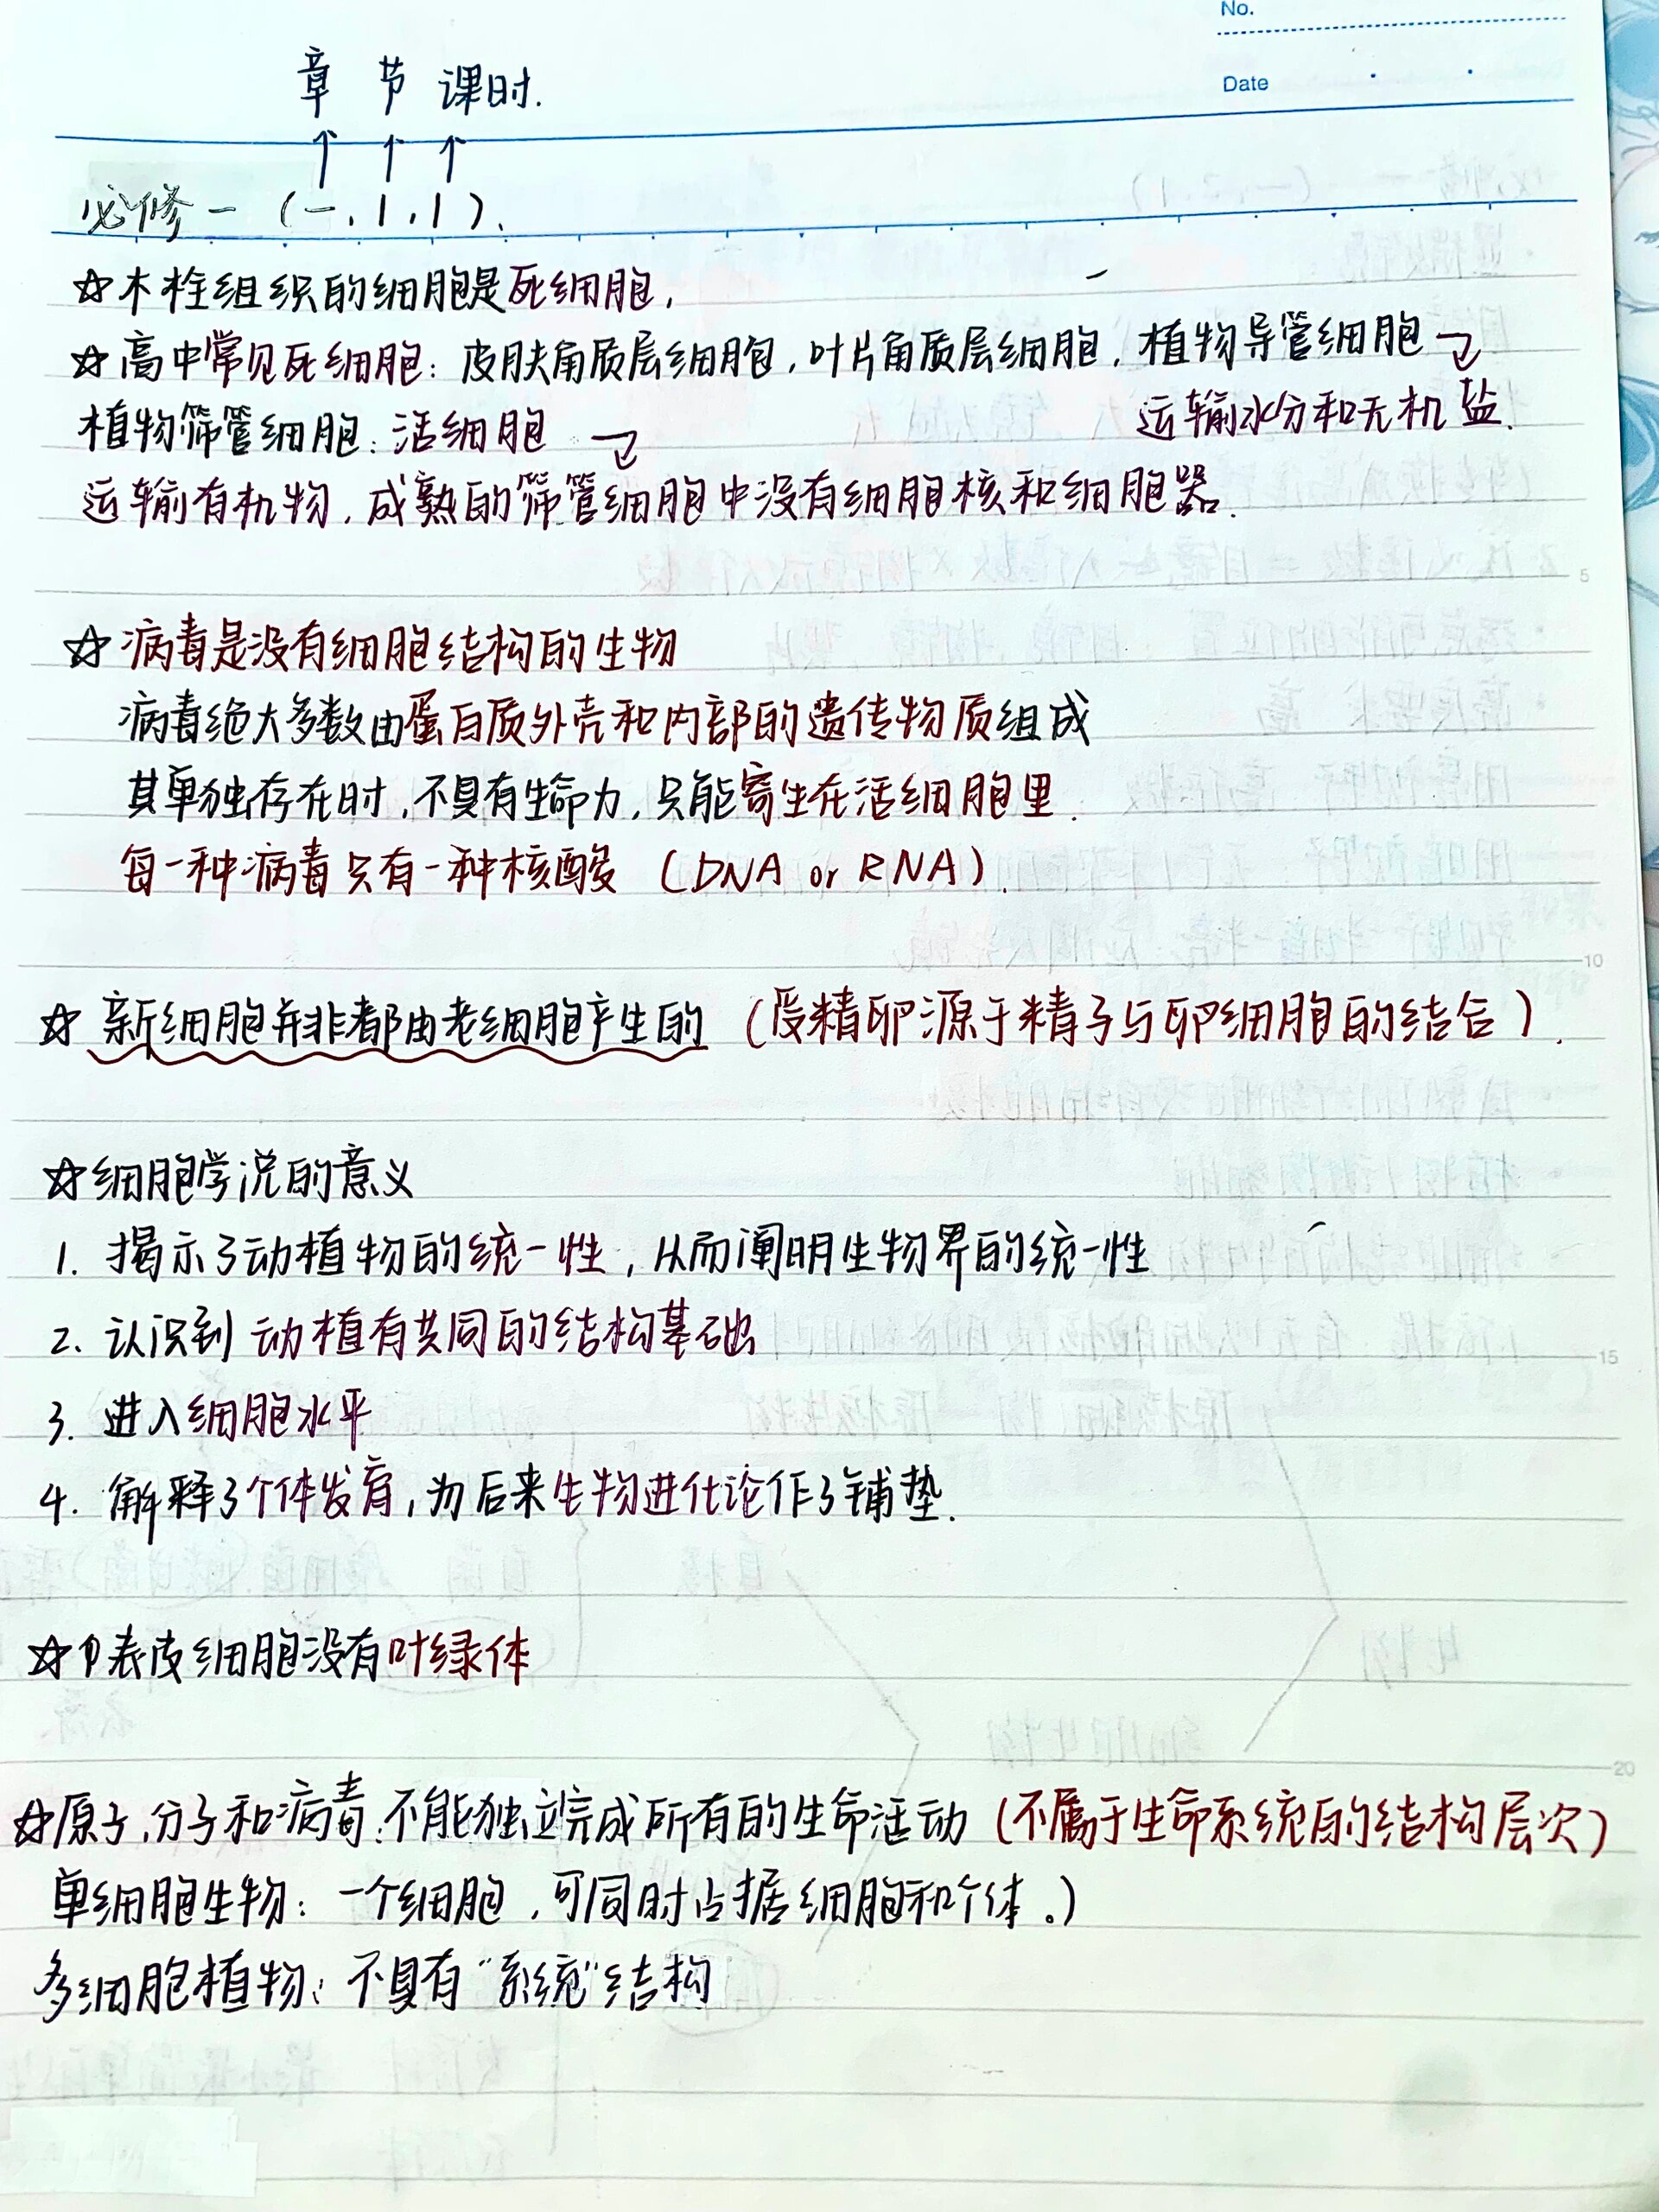 No.
Date
章 节 课时.
↑ ↑ ↑
必修一 (一,1,1).
☆木栓组织的细胞是死细胞,
☆高中常见死细胞:皮肤角质层细胞,叶片角质层细胞,植物导管细胞
运输水分和无机盐.
植物筛管细胞:活细胞
运输有机物,成熟的筛管细胞中没有细胞核和细胞器.
5
☆病毒是没有细胞结构的生物
病毒绝大多数由蛋白质外壳和内部的遗传物质组成
其单独存在时,不具有生命力,只能寄生在活细胞里.
每一种病毒只有一种核酸 (DNA or RNA).
10
☆新细胞并非都由老细胞产生的 (受精卵源于精子与卵细胞的结合).
☆细胞学说的意义
1. 揭示了动植物的统一性,从而阐明生物界的统一性
2. 认识到动植有共同的结构基础
15
3. 进入细胞水平
4. 解释了个体发育,为后来生物进化论作了铺垫.
☆表皮细胞没有叶绿体
20
☆原子,分子和病毒:不能独立完成所有的生命活动 (不属于生命系统的结构层次)
单细胞生物:一个细胞,可同时占据细胞和个体。)
多细胞植物:不具有"系统"结构